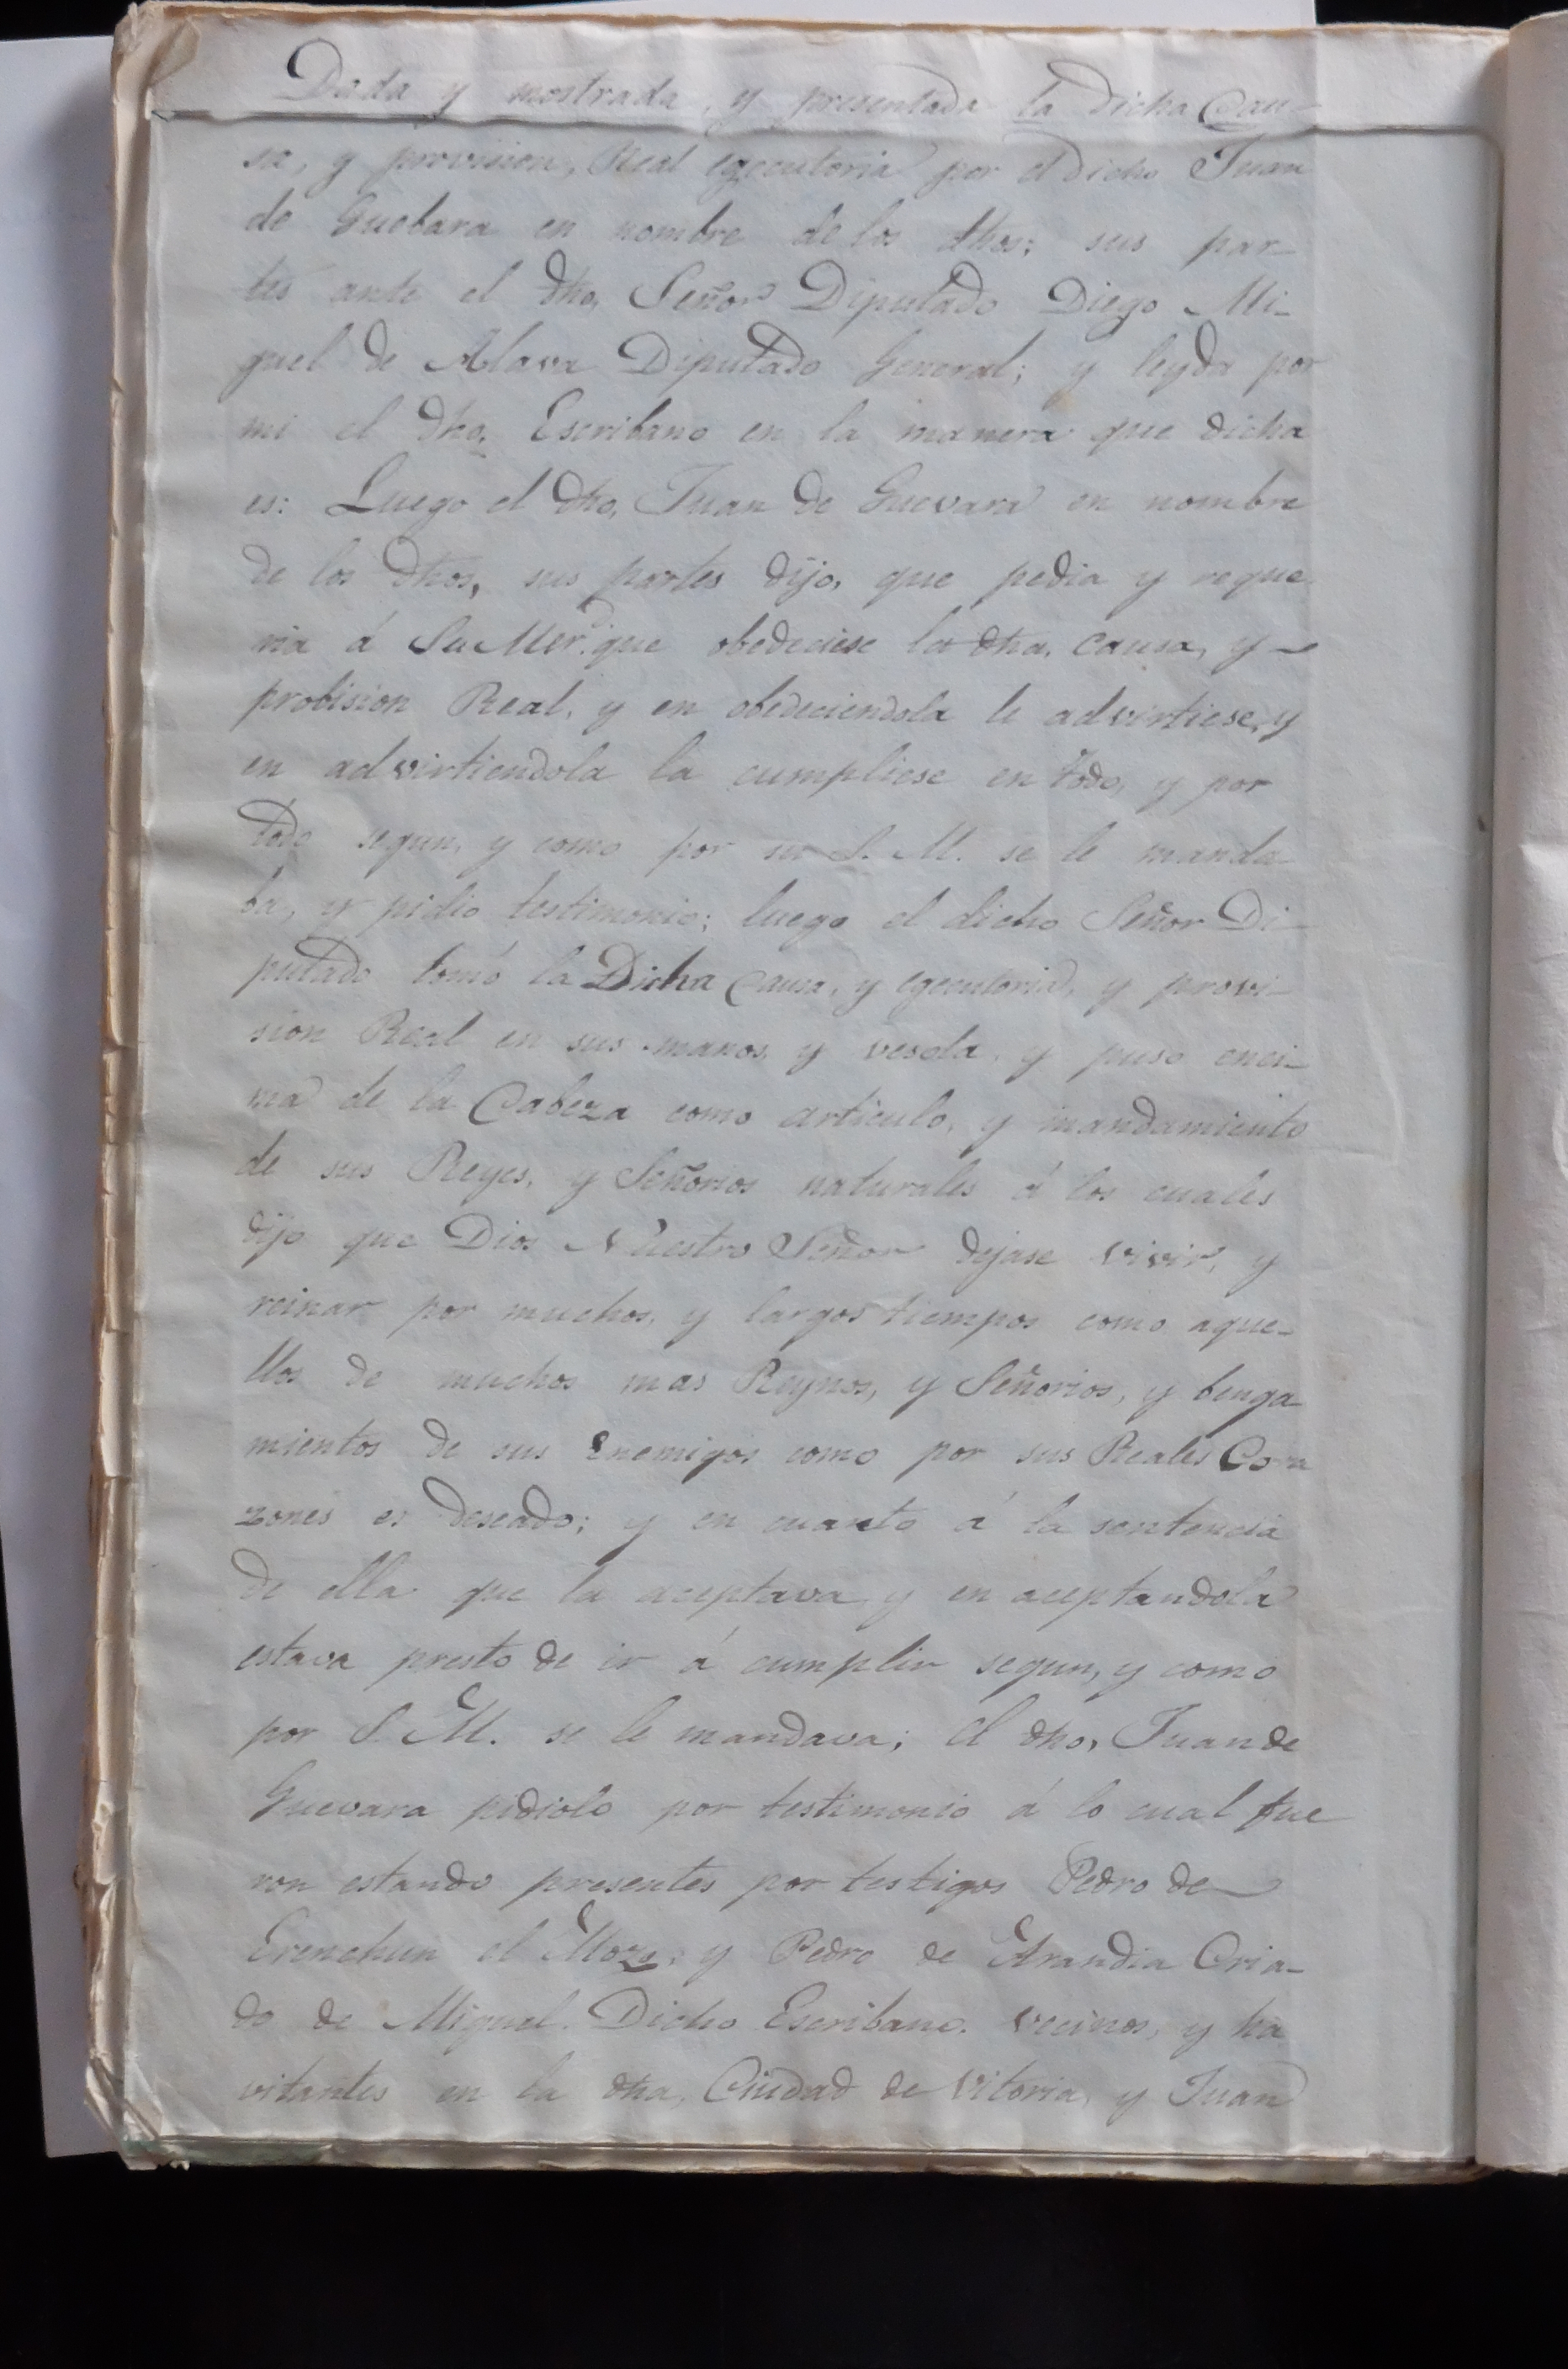 Dada y mostrada, y presentada la dicha Cau-
sa, y provision, Real egecutoria por el dicho Juan
de Guebara en nombre de los dhos; sus par-
tes ante el dho, Señor Diputado Diego Mi-
guel de Alava Diputado General; y leyda por
mi el dho, Escribano en la manera que dicha
es: Luego el dho, Juan de Guevara en nombre
de los dhos, sus partes dijo, que pedia y reque
ria á Su Mer.d que obedeciese la dha, causa, y
probision Real, y en obedeciendola le advirtiese, y
en advirtiendola la cumpliese en todo, y por
todo segun, y como por su S. M. se le manda
ba, y pidio testimonio; luego el dicho Señor Di-
putado tomó la Dicha Causa, y egecutoria, y provi-
sion Real en sus manos, y vesola, y puso enci-
ma de la Cabeza como articulo, y mandamiento
de sus Reyes, y Señorios naturales á los cuales
dijo que Dios Nuestro Señor dejase vivir, y
reinar por muchos, y largos tiempos como aque-
llos de muchos mas Reynos, y Señorios, y benga
mientos de sus Enemigos como por sus Reales Cora
zones es deseado; y en cuanto á la sentencia
de ella que la aceptava y en aceptandola
estava presto de ir á cumplir segun, y como
por S. M. se le mandava; el dho, Juan de
Guevara pidiolo por testimonio á lo cual fue
ron estando presentes por testigos Pedro de
Erenchun el Mozo, y Pedro de Arandia Cria-
do de Miguel. Dicho Escribano. vecinos, y ha
vitantes en la dha, Ciudad de Vitoria, y Juan